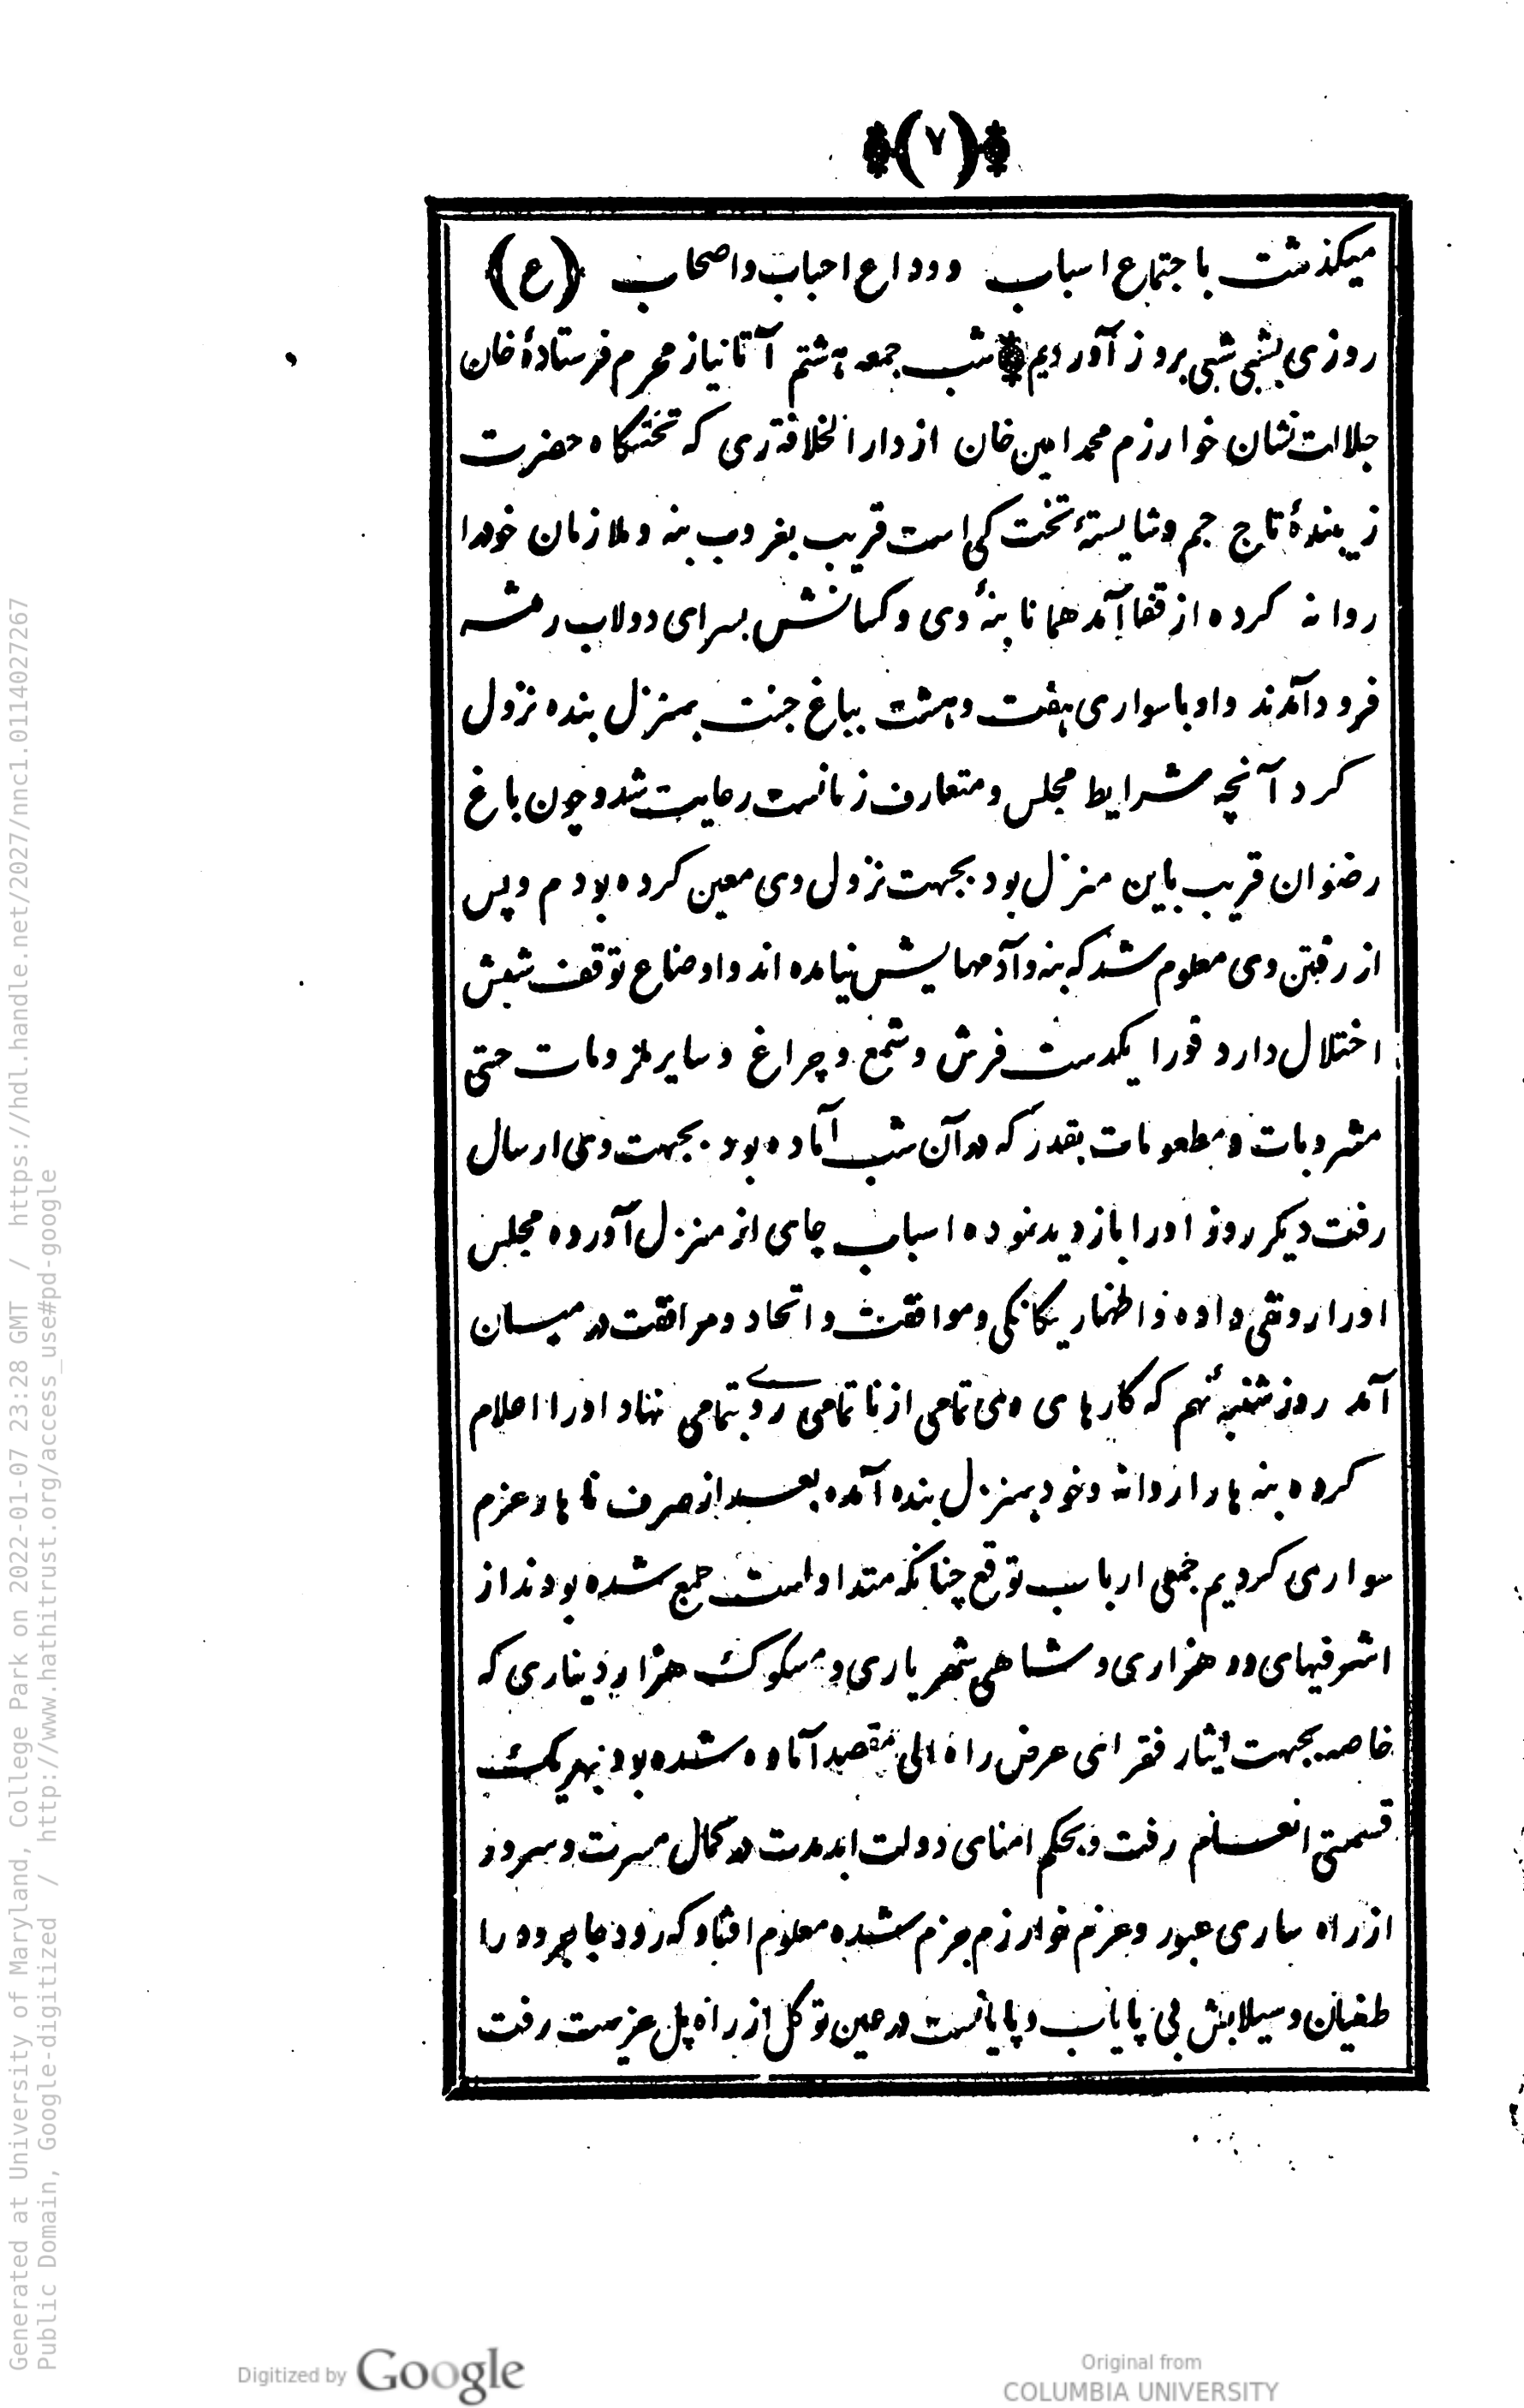 (٧)
میکذشت باجتماع اسباب وودا ع احباب واصحاب (ع)
روزی بشبی شبی بروز آوردیم شب جمعه هشتم آتا نیاز محرم فرستادهٔ خان
جلالت نشان خوارزم محمد امین خان از دار الخلافهٔ ری که تختکاه حضرت
زیبندهٔ تاج جم وشایستهٔ تخت کی است قریب بغروب بنه وملازمان خودرا
روانه کرده از قفا آمد همانا بنهٔ وی وکسانش بسرای دولاب رفته
فرود آمدند واو با سواری هفت وهشت بباغ جنت بمنزل بنده نزول
کرد آنچه شرایط مجلس ومتعارف زمانست رعایت شد وچون باغ
رضوان قریب باین منزل بود بجهت نزول وی معین کرده بودم وپس
از رفتن وی معلوم شد که بنه وآدمهایش نیامده اند واوضاع توقف شبش
اختلال دارد فورا یکدست فرش وشمع وچراغ وسایر ملزومات حتی
مشروبات ومطعومات بقدر که در آن شب آماده بود بجهت وی ارسال
رفت دیکر روز اورا بازدید نموده اسباب چای از منزل آورده مجلس
اورا رونقی داده و اظهار یکانکی وموافقت واتحاد ومرافقت در میان
آمد روز شنبهٔ نهم که کارهای وی تمامی از ناتمامی روی بتمامی نهاد اورا اعلام
کرده بنه هارا روانه وخود بمنزل بنده آمده بعد از صرف ناهار عزم
سواری کردیم جمعی ارباب توقع چنانکه متداولست جمع شده بودند از
اشرفیهای دو هزاری و شاهی شهریاری ومسکوک هزار دیناری که
خاصه بجهت ایثار فقرای عرض راه الی مقصد آماده شده بود بهریک
قسمتی انعام رفت وبحکم امنای دولت ابدمدت در کمال مسرت وسرور
از راه ساری عبور وعزم خوارزم جزم شده معلوم افتاد که رود جاجرود را
طغیان وسیلابش بی پایاب وپایانست در عین توکل از راه پل عزیمت رفت
Generated at University of Maryland, College Park on 2022-01-07 23:28 GMT / https://hdl.handle.net/2027/nnc1.0114027267
Public Domain, Google-digitized / http://www.hathitrust.org/access_use#pd-google
Digitized by Google
Original from
COLUMBIA UNIVERSITY